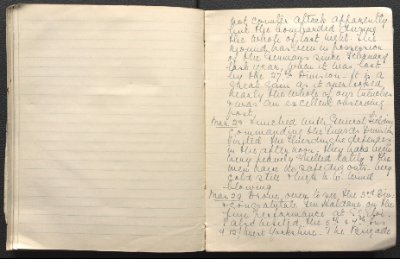 not counter attack apparently
but he bombarded during
the whole of last night. The
ground has been in possession
of the Germans since February
last year, when it was lost
by the 27th Division. It is a
great gain as it overlooked
nearly the whole of our trenches
& was an excellent observing
post.
Mar. 28 Lunched with General Feilding
Commanding the Guards Division
visited the Elverdinghe defences
in the afternoon. They have been
very heavily shelled lately & the
men have do safe dug outs. Very
cold still & high N. W. wind
blowing
Mar. 29 Drove over to see the 3rd Div.
& congratulate Gen Haldane on the
fine performance at St Eloi.
I also visited the 6th & 7th Bns
& 12th West Yorkshire. The Brigade